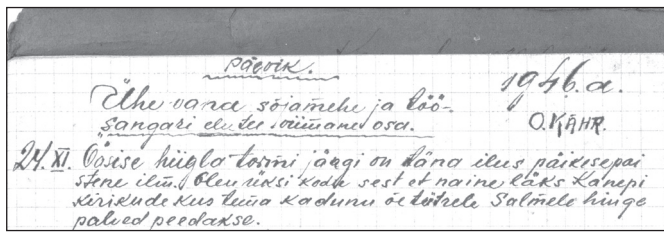 Päevik.
1946.a.
Ühe vana sõjamehe ja töö-
sangari elutee viimane osa.
O. KÄHR.
24.XI. Öösise hiigla tormi järgi on täna ilus päikesepai
stene ilm. Olen üksi kodu sest et naine läks Kanepi
kirikude kus tema kadunu õe tütrele Salmele hinge
palved peedakse.